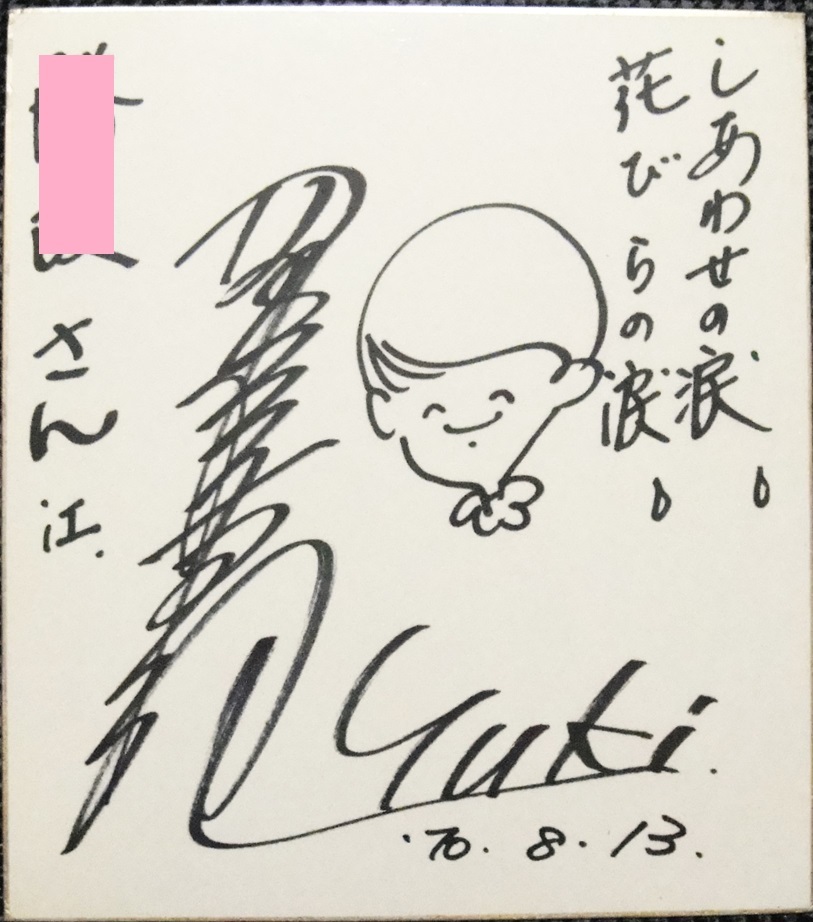 しあわせの涙
花びらの涙
さん江.
Yuki.
'70. 8. 13.